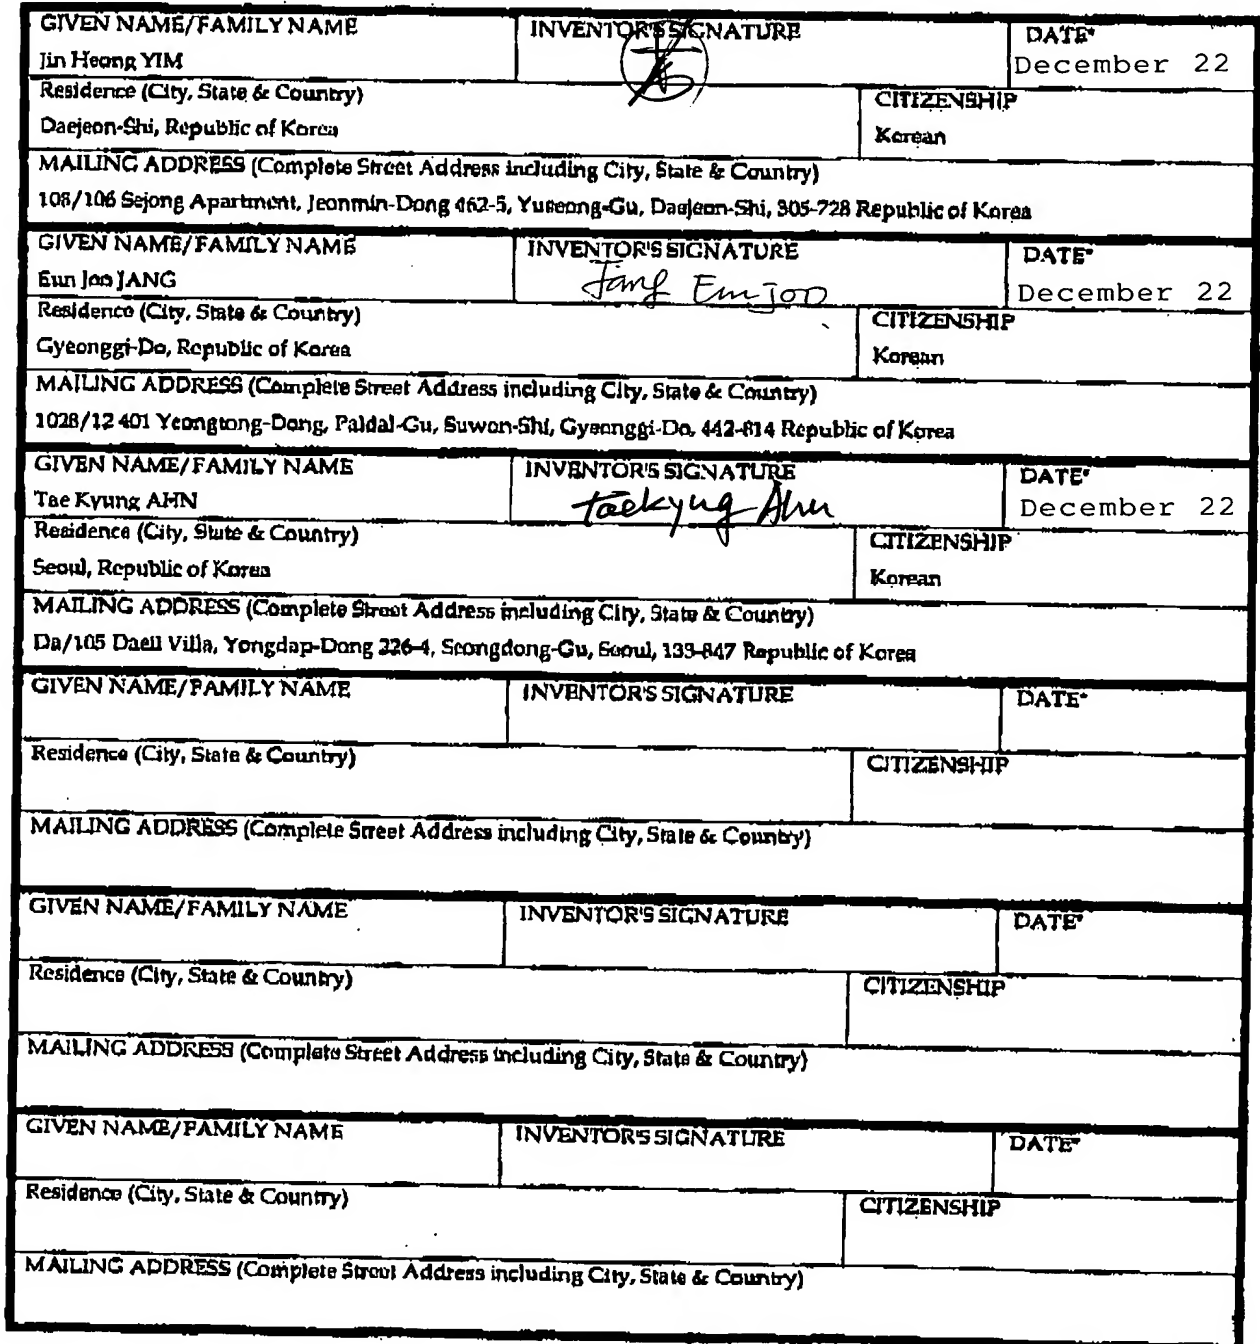 GIVEN NAME/FAMILY NAME INVENTOR'S SIGNATURE DATE*
Jin Heong YIM December 22
Residence (City, State & Country) CITIZENSHIP
Daejeon-Shi, Republic of Korea Korean
MAILING ADDRESS (Complete Street Address including City, State & Country)
108/106 Sejong Apartment, Jeonmin-Dong 462-5, Yuseong-Gu, Daejeon-Shi, 305-728 Republic of Korea
GIVEN NAME/FAMILY NAME INVENTOR'S SIGNATURE DATE*
Eun Joo JANG Jang Eun Joo December 22
Residence (City, State & Country) CITIZENSHIP
Gyeonggi-Do, Republic of Korea Korean
MAILING ADDRESS (Complete Street Address including City, State & Country)
1028/12 401 Yeongtong-Dong, Paldal-Gu, Suwon-Shi, Gyeonggi-Do, 442-814 Republic of Korea
GIVEN NAME/FAMILY NAME INVENTOR'S SIGNATURE DATE*
Tae Kyung AHN Taekyung Ahn December 22
Residence (City, State & Country) CITIZENSHIP
Seoul, Republic of Korea Korean
MAILING ADDRESS (Complete Street Address including City, State & Country)
Da/105 Daeil Villa, Yongdap-Dong 226-4, Seongdong-Gu, Seoul, 133-847 Republic of Korea
GIVEN NAME/FAMILY NAME INVENTOR'S SIGNATURE DATE*
Residence (City, State & Country) CITIZENSHIP
MAILING ADDRESS (Complete Street Address including City, State & Country)
GIVEN NAME/FAMILY NAME INVENTOR'S SIGNATURE DATE*
Residence (City, State & Country) CITIZENSHIP
MAILING ADDRESS (Complete Street Address including City, State & Country)
GIVEN NAME/FAMILY NAME INVENTOR'S SIGNATURE DATE*
Residence (City, State & Country) CITIZENSHIP
MAILING ADDRESS (Complete Street Address including City, State & Country)